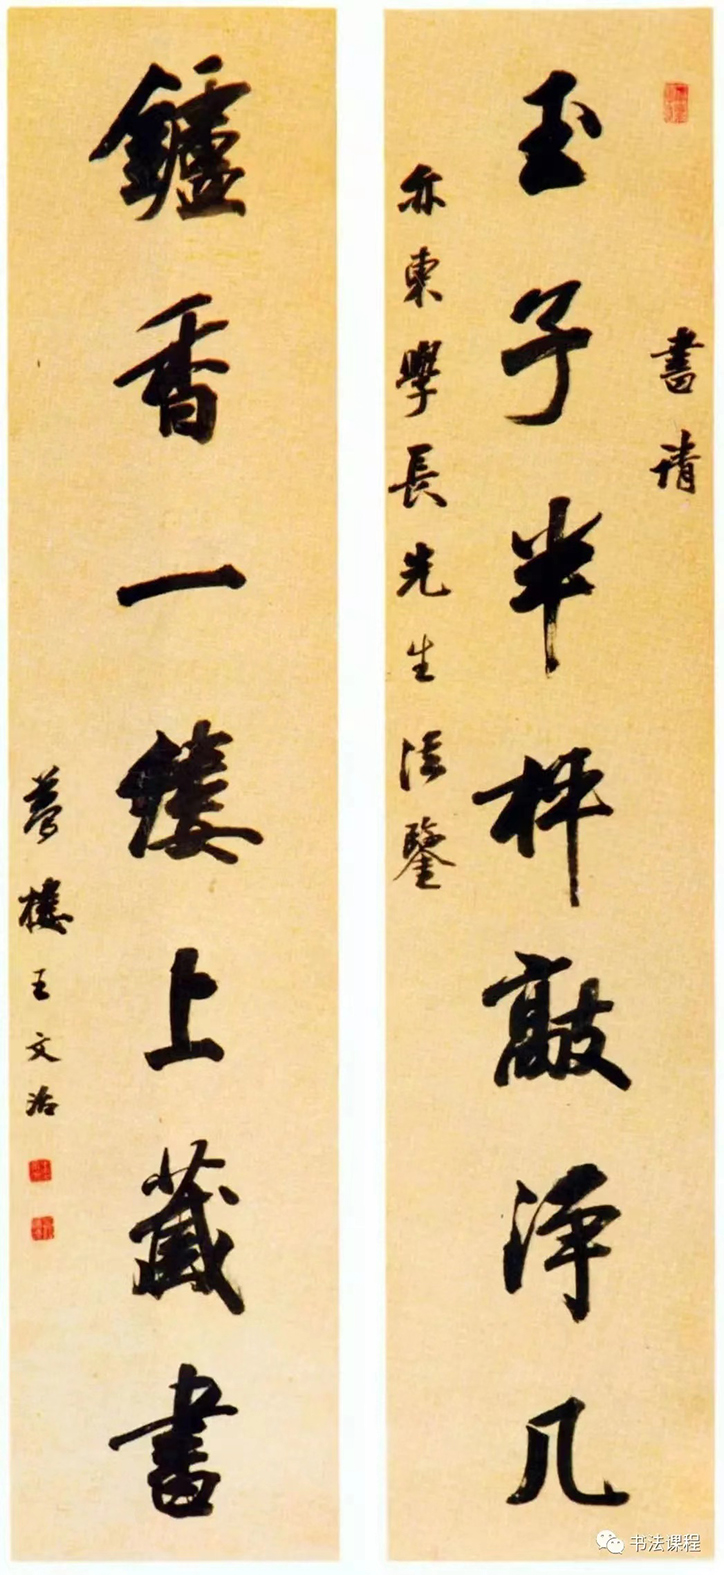 書請
玉子半枰敲淨几
亦東學長先生法鑒
鑪香一縷上藏書
夢樓王文治
书法课程